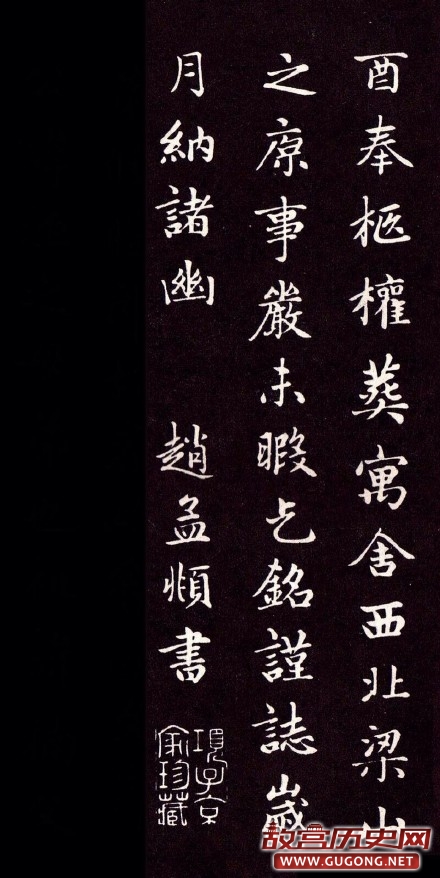 酉奉柩權葬寓舍西北梁山
之原事嚴未暇乞銘謹誌歲
月納諸幽 趙孟頫書
項子京
家珍藏
故宫历史网
WWW.GUGONG.NET